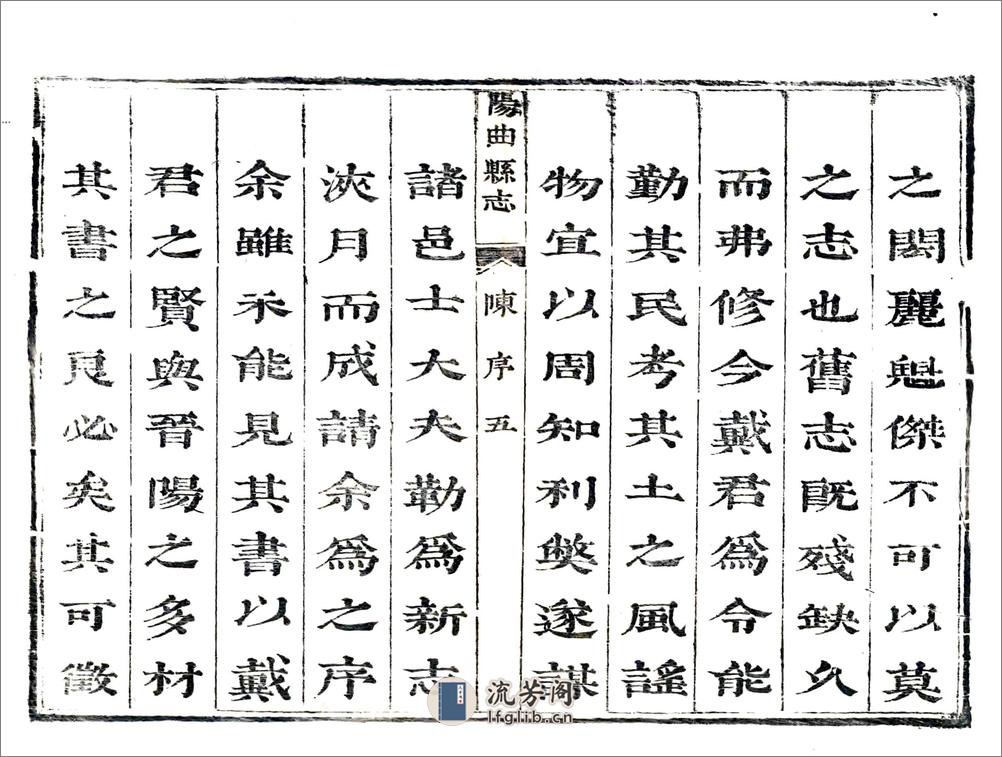 之閎麗魁傑不可以莫
之志也舊志既殘缺久
而弗修今戴君為令能
勤其民考其土之風謠
物宜以周知利獘遂謀
陽曲縣志 陳序 五
諸邑士大夫勒為新志
浹月而成請余為之序
余雖未能見其書以戴
君之賢與晉陽之多材
其書之良必矣其可徵
流芳阁
lfglib.cn